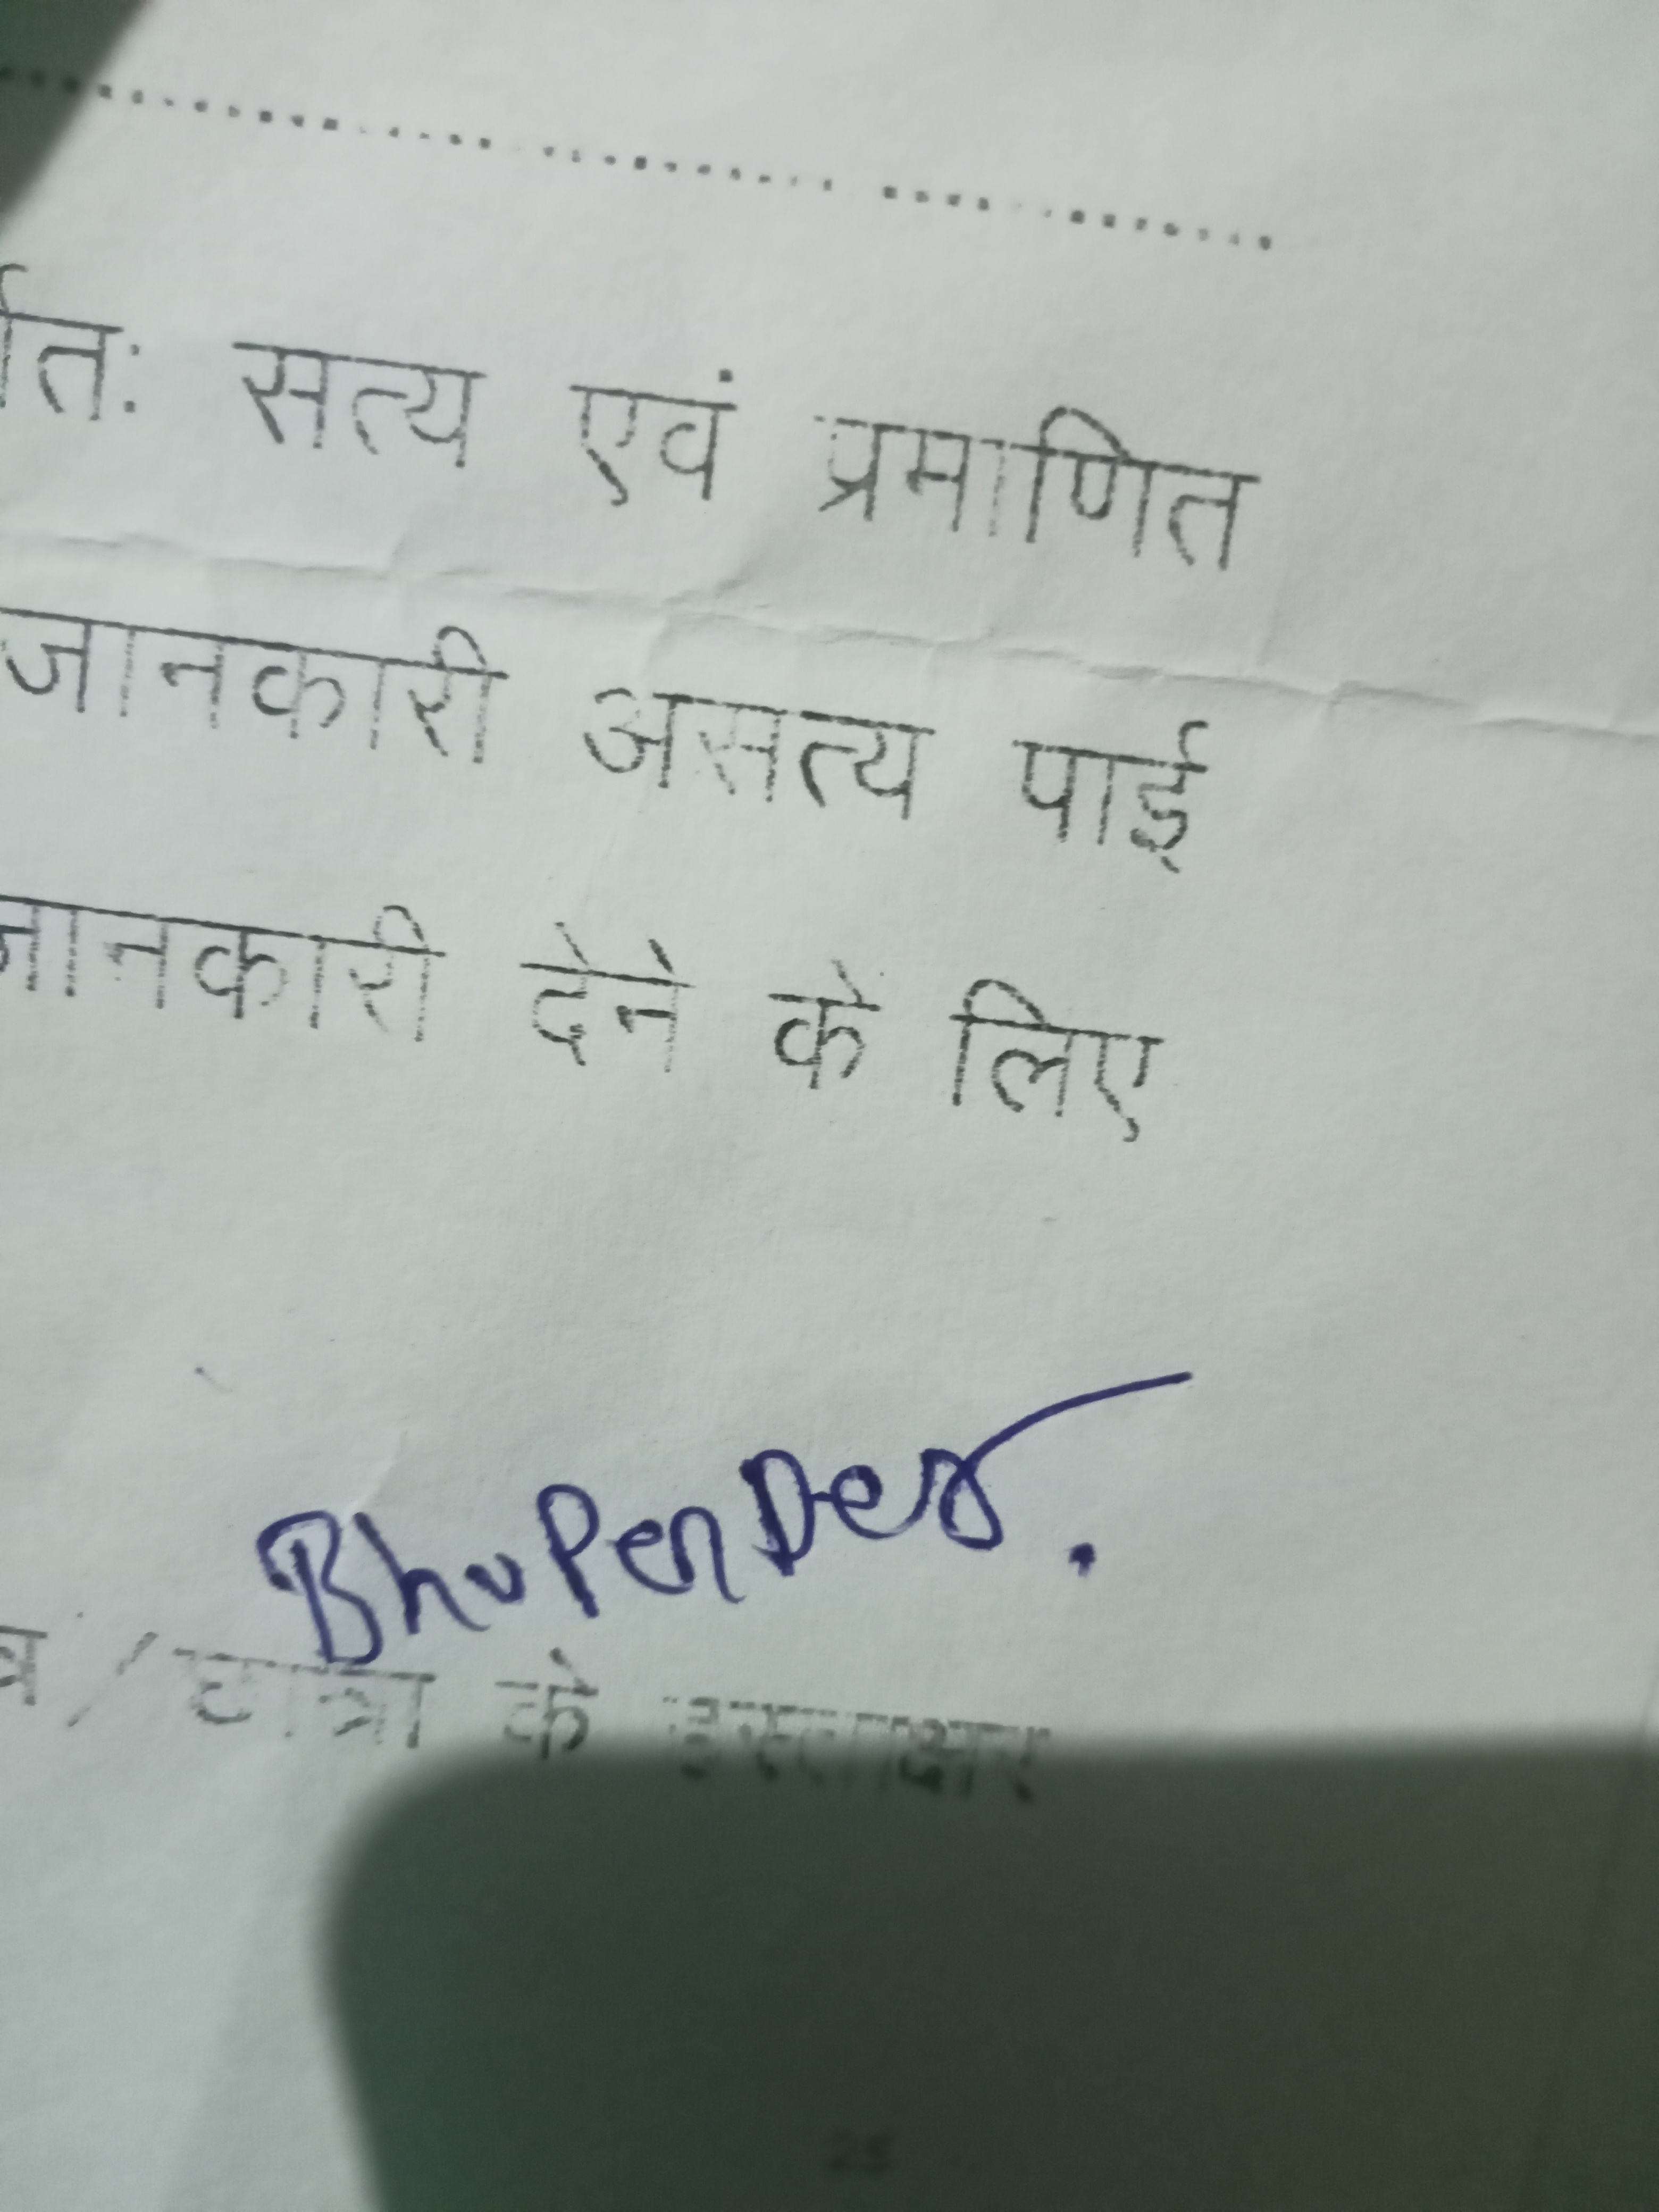 र्णतः सत्य एवं प्रमाणित
जानकारी असत्य पाई
जानकारी देने के लिए
BhuPenDer.
त्र / छात्रा के हस्ताक्षर
25